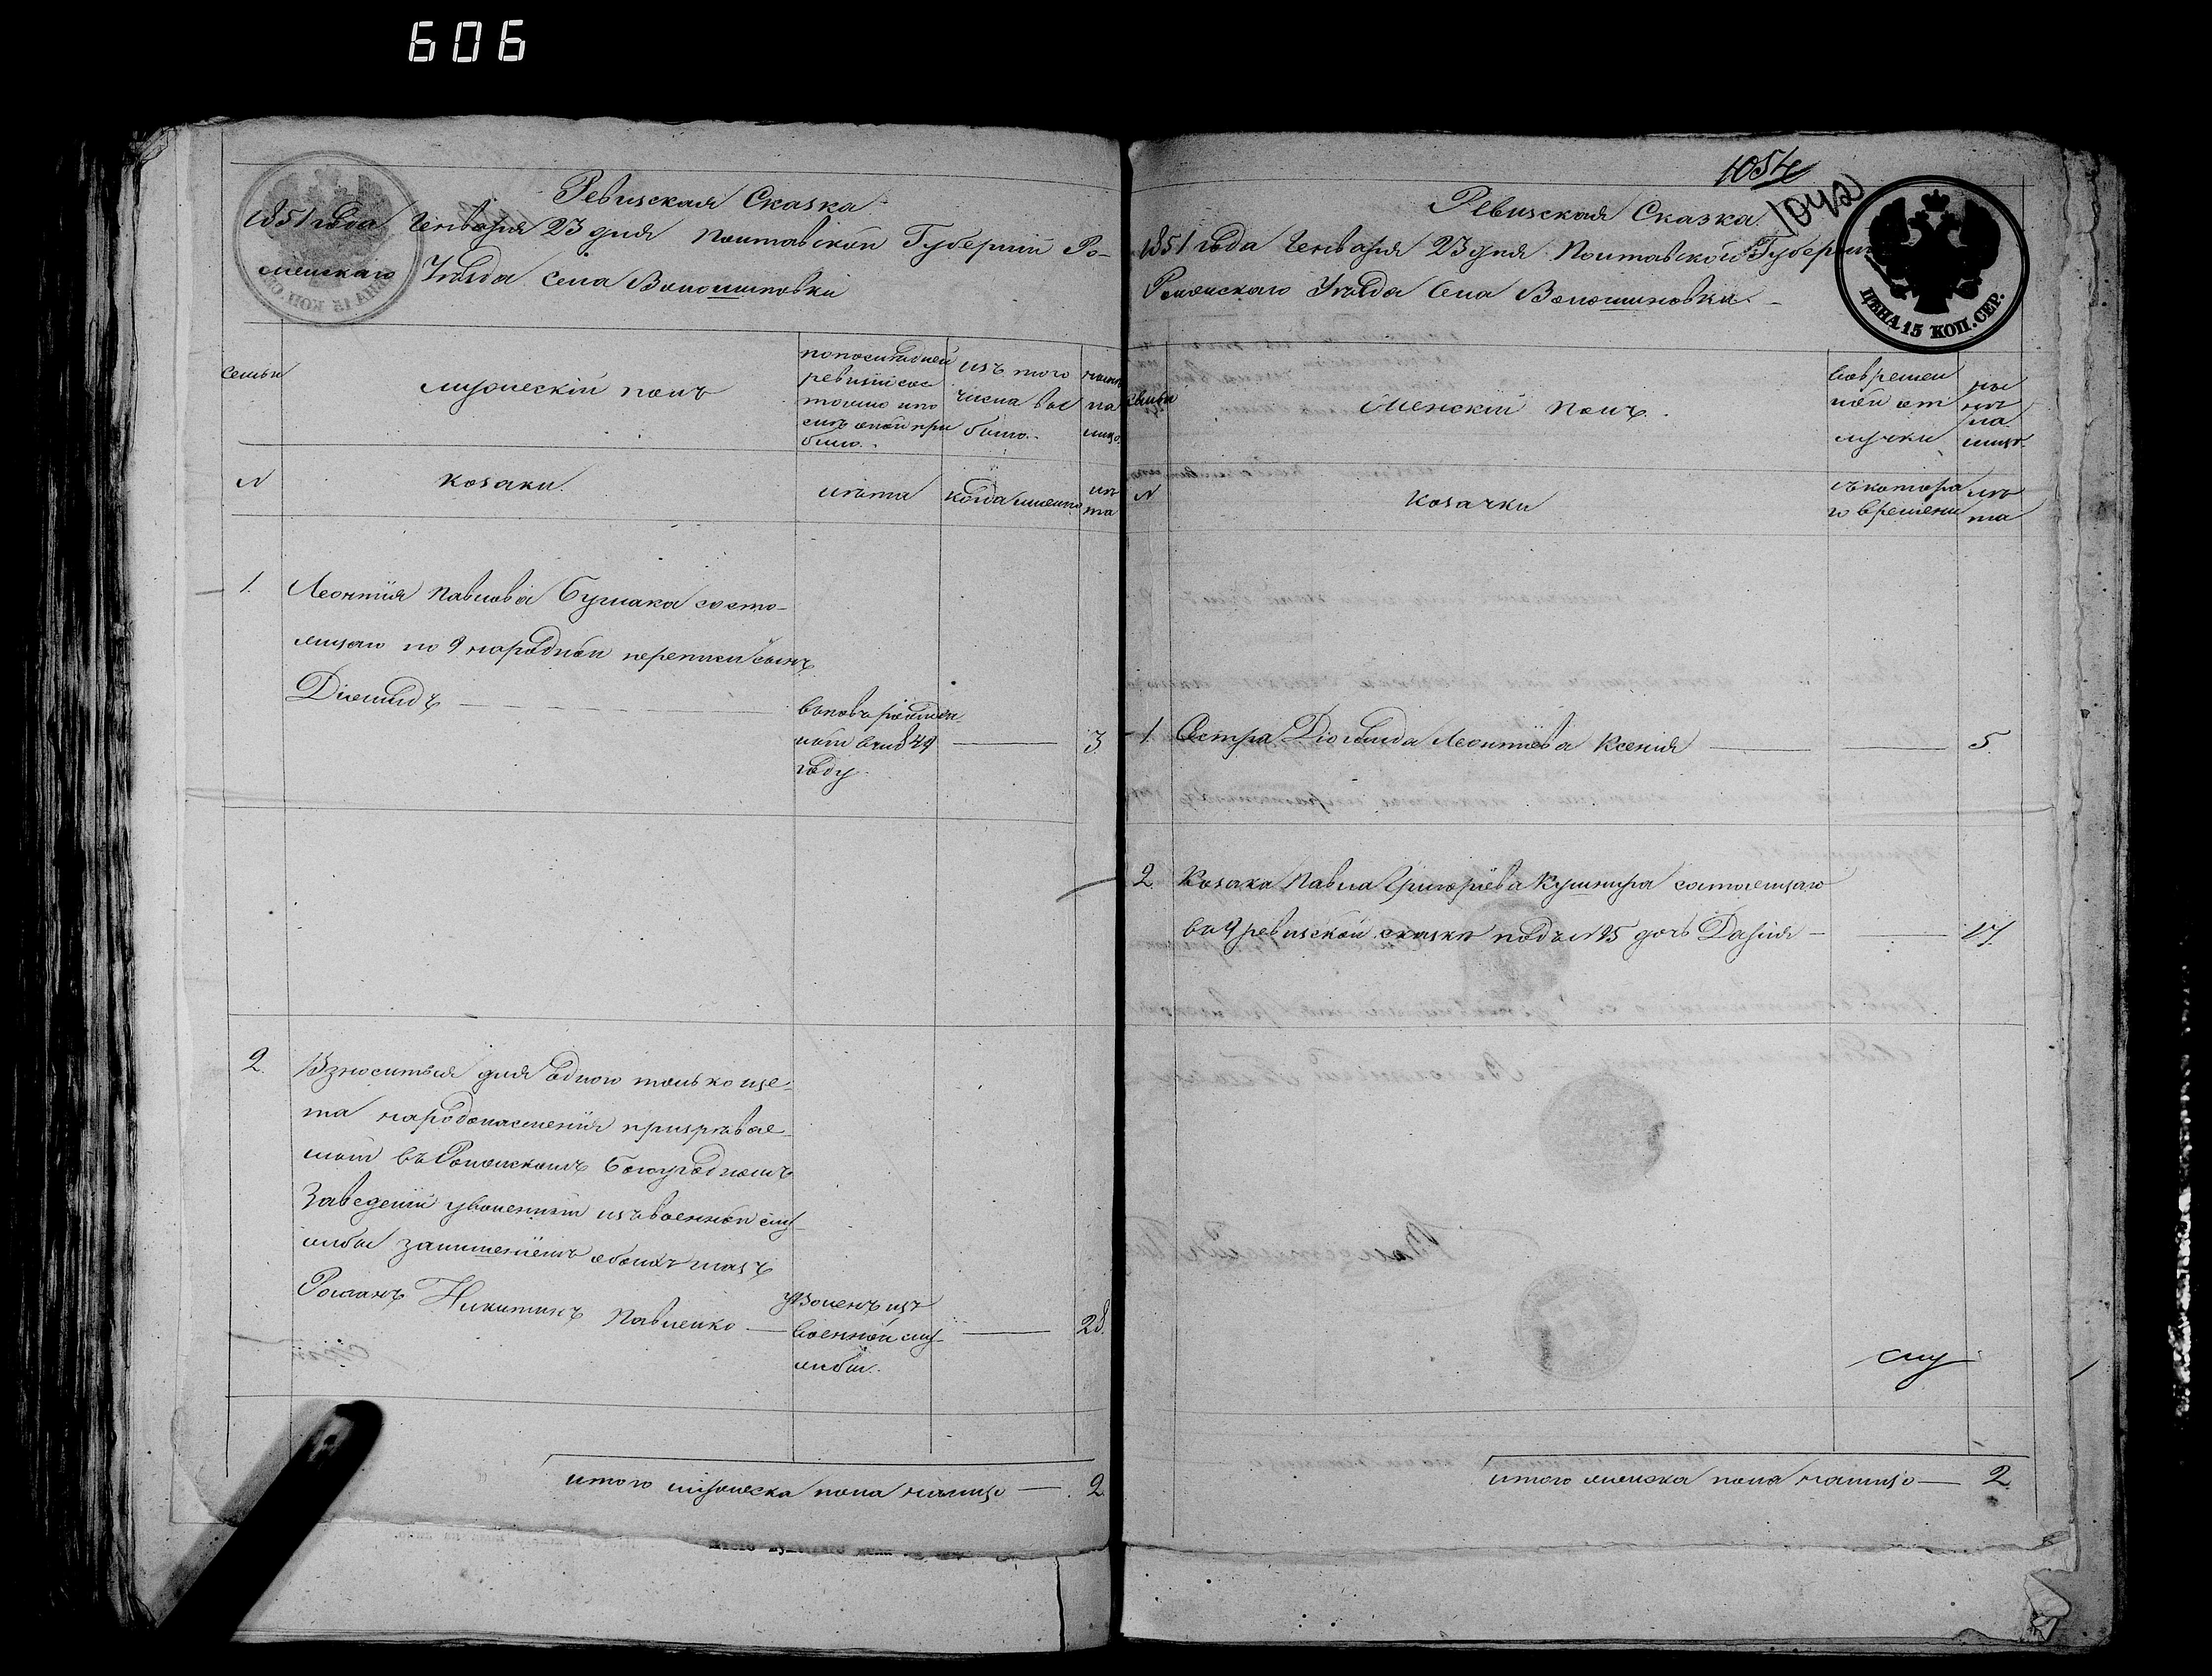 606
Ревизская Сказка
1851 года Генваря 23 дня Полтавской Губернии Ро-
менскаго Уезда Села Волошиновки
семьи
мужескій полъ
по последней
ревизіи сос
тояло и по
сле оной при
было.
изъ того
числа вы
было.
на
лицо.
N
козаки.
лета
когда именно
ле
та
1. Леонтия Павлова Бурлака состо-
ящаго по 9 народной переписи сынъ
Діомидъ
вновь рожден
ной въ 1848
году
3
2. Взноситься для одного только щe-
та народонаселенія призревае-
мый въ Роменскомъ Богоугодномъ
Заведеніи уволенный изъ военной слу-
жбы за лишеніемъ обоихъ глазъ
Романъ Никитинъ Павленко
Уволенъ изъ
военной слу-
жбы.
28.
итого мужеска пола налицо 2
1054
1042
Ревизская Сказка.
1851 года Генваря 23 дня Полтавской Губерніи
Роменскаго Уезда Села Волошиновки
ЦѢНА 15 КОП. СЕР.
семьи
Женскій полъ.
во времен
ной от
лучки
на
лицо.
N
козачки
съ котора
го времени
ле
та
1. Сестра Діомида Леонтіева Ксенія 5.
2. Козака Павла Григоріева Кушнира состоящаго
въ 9 ревизской сказки подъ N 25 дочь Дарія 17.
слу
итого женска пола налицо 2.